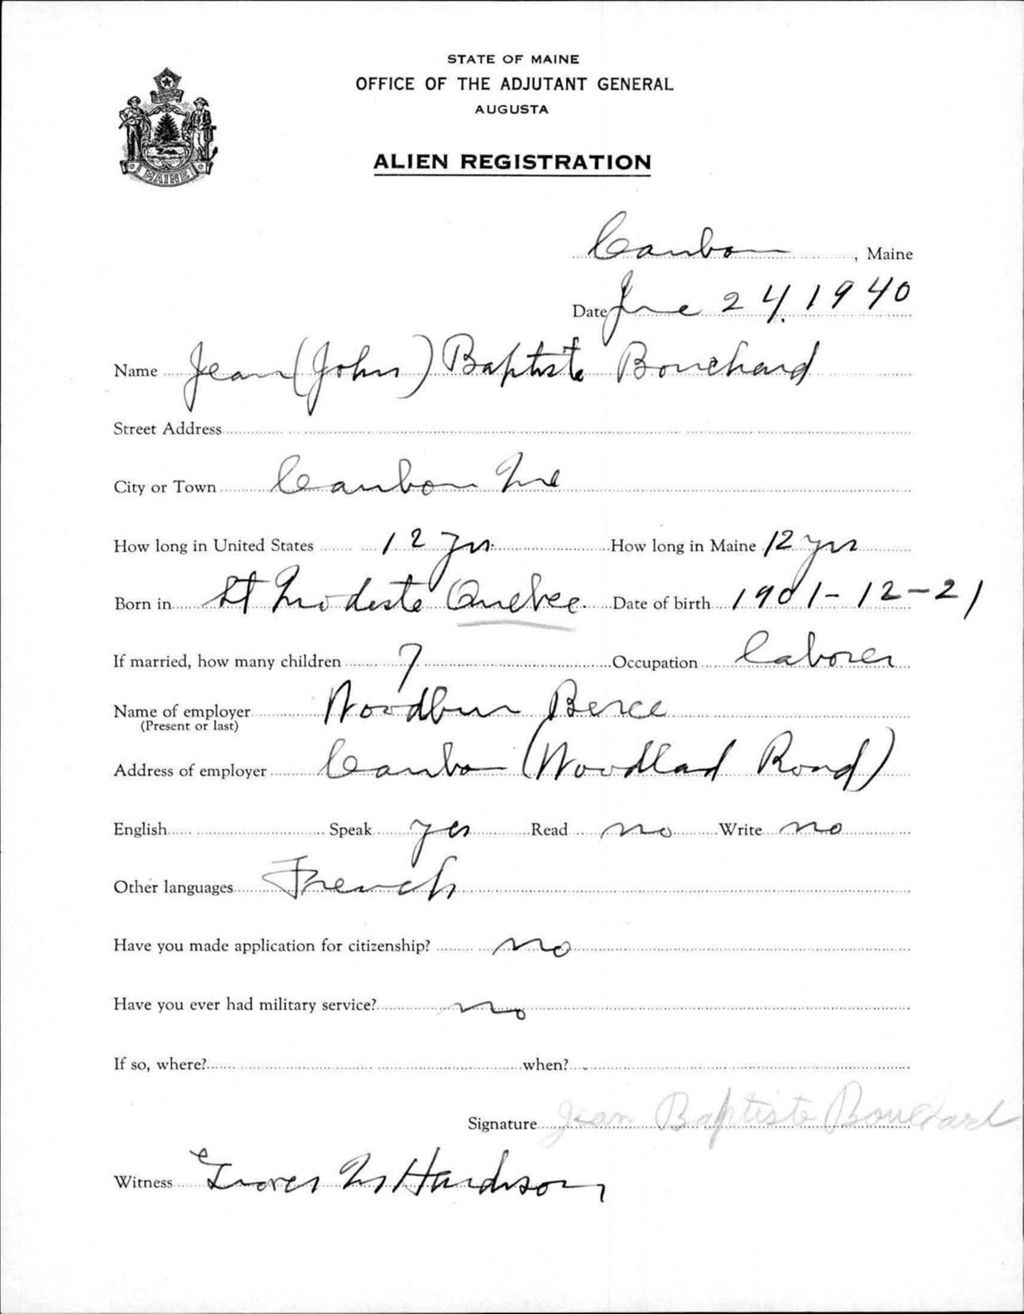 STATE OF MAINE
OFFICE OF THE ADJUTANT GENERAL
AUGUSTA
ALIEN REGISTRATION
MAINE
Caribou, Maine
Date June 24, 1940
Name Jean (John) Baptiste Bouchard
Street Address
City or Town Caribou Me
How long in United States 12 yrs. How long in Maine 12 yrs
Born in St Modeste Quebec. Date of birth 1901-12-21
If married, how many children 7 Occupation laborer
Name of employer Woodbury Berce
(Present or last)
Address of employer Caribou (Woodland Road)
English Speak yes Read no Write no
Other languages French
Have you made application for citizenship? no
Have you ever had military service? no
If so, where? when?
Signature Jean Baptiste Bouchard
Witness Grover M Hardison